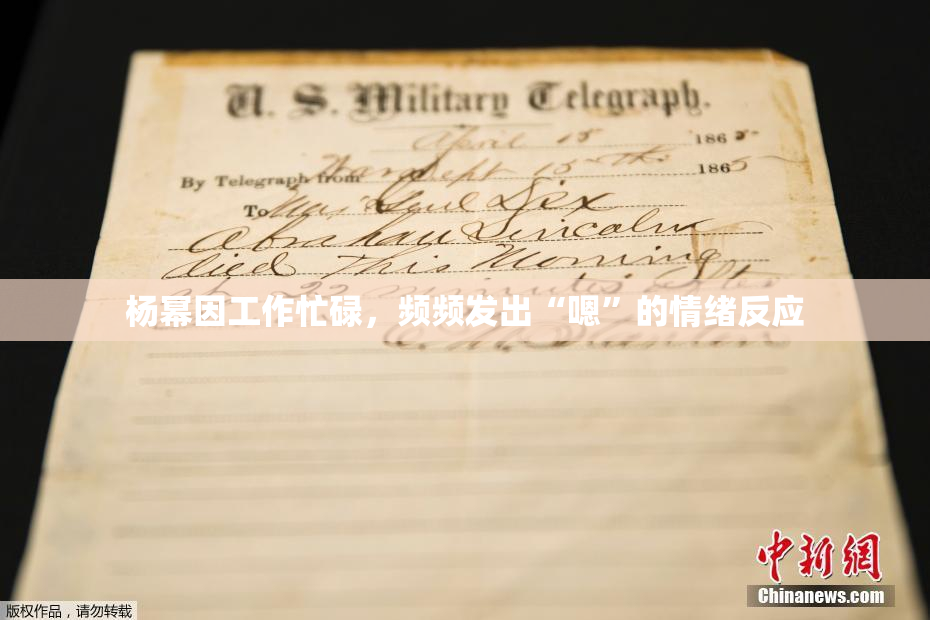 U. S. Military Telegraph.
April 15 1865
By Telegraph from War Dept 15th 1865
To Maj Genl Dix
Abraham Lincoln
died This Morning
at 22 minutes after
杨幂因工作忙碌，频频发出“嗯”的情绪反应
E. M. Stanton
中新网
Chinanews.com
版权作品，请勿转载